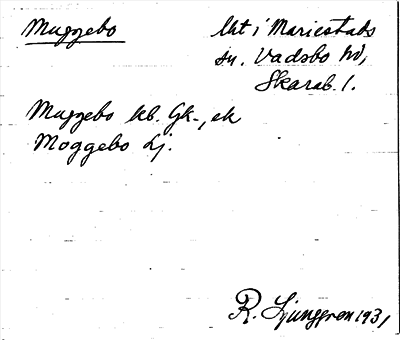 Muggebo
Lht i Mariestads
sn. Vadsbo hd,
Skarab. l.
Muggebo kb. Gk-, ek
Moggebo Lj.
R. Ljunggren 1931